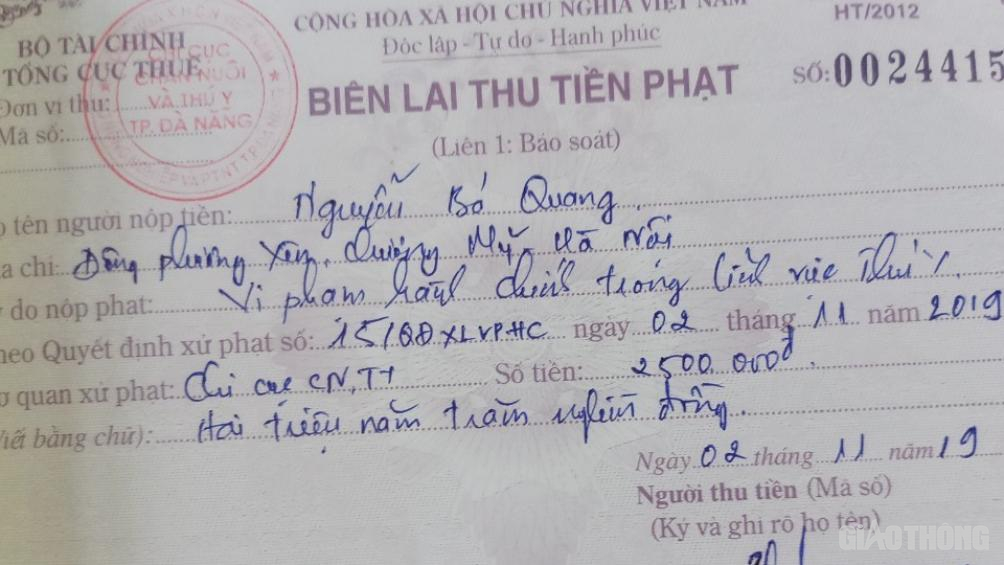 CỘNG HÒA XÃ HỘI CHỦ NGHĨA VIỆT NAM
HT/2012
BỘ TÀI CHÍNH
Độc lập - Tự do - Hạnh phúc
TỔNG CỤC THUẾ
BIÊN LAI THU TIỀN PHẠT
SỐ: 0024415
Đơn vị thu:
CHI CỤC
CHĂN NUÔI
VÀ THÚ Y
TP. ĐÀ NẴNG
Mã số:
(Liên 1: Báo soát)
tên người nộp tiền: Nguyễn Bá Quang.
chỉ: Đông phương Yên, Chương Mỹ, Hà Nội
do nộp phạt: Vi phạm hành chính trong lĩnh vực thú y.
heo Quyết định xử phạt số: 15/QĐXLVPHC ngày 02 tháng 11 năm 2019
quan xử phạt: Chi cục CN, TY Số tiền: 2500.000đ.
Viết bằng chữ): Hai triệu năm trăm nghìn đồng.
Ngày 02 tháng 11 năm 19
Người thu tiền (Mã số)
(Ký và ghi rõ họ tên)
GIAOTHÔNG